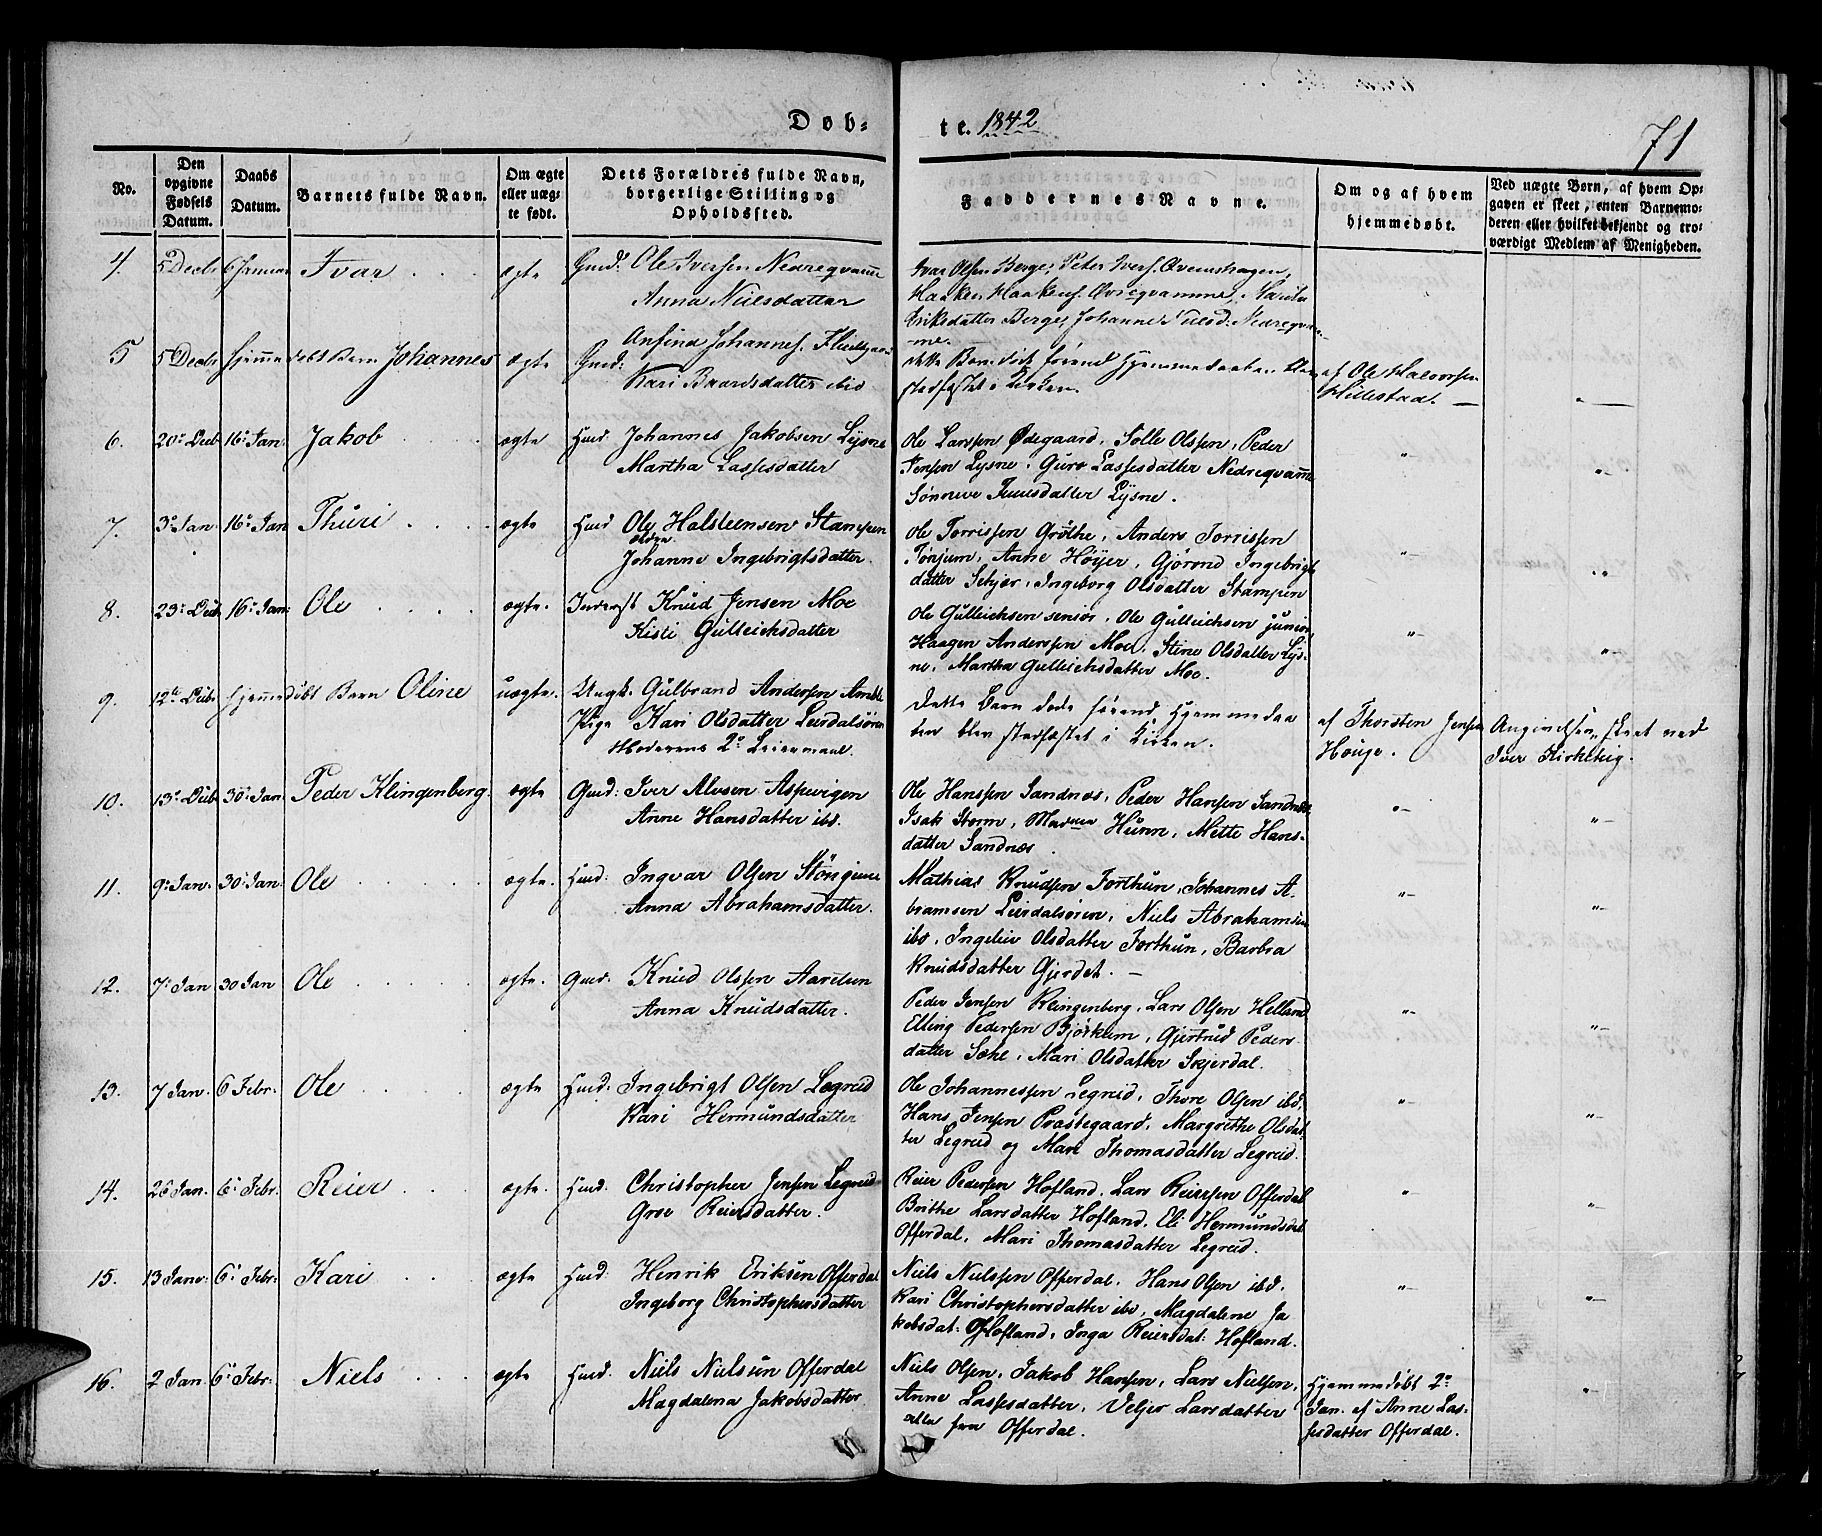 Døb-
te. 1842
71
No.
Den opgivne Fødsels Datum.
Daabs Datum.
Barnets fulde Navn.
Om ægte eller uægte født.
Dets Forældres fulde Navn, borgerlige Stilling og Opholdssted.
Faddernes Navne.
Om og af hvem hjemmedøbt.
Ved uægte Børn, af hvem Op-
gaven er skeet, enten Barnemo-
deren eller hvilket bekjendt og tro-
værdigt Medlem af Menigheden.
4. 5 Decbr 6 Januar Ivar ægte Gmd. Ole Iversen Nedreqvamme
Anna Nielsdatter
Ivar Olsen Berge, Peter Ivers. Qvemshagen,
Haaken Haakens. Øvreqvamme, Marita
Eriksdatter Berge, Johanne Nielsd. Nedreqvam-
me.
5 5 Decbr hjemmedøbt Barn Johannes ægte Gmd. Anfind Johannes.
Kari Baardsdatter ibid
dette Barn døde førend Hjemmedaaben blev
stadfæstet i Kirken.
af Ole Halvorsen
Hillestad. —
6. 20de Deb 16de Jan. Jakob ægte Hmd Johannes Jakobsen Lysne
Martha Lassesdatter
Ole Larssen Ødegaard, Solle Olssen, Peder
Jensen Lysne, Guro Lassesdatter Nedreqvamme
Sønneve Juulsdatter Lysne.
7. 3de Jan 16de Jan Thuri ægte Hmd Ole Halsteensen Stampen
Johanne Ingebrigtsdatter.
Ole Torrissen Grøthe, Anders Torrissen
Tønjum, Anne Høyer, Gjørond Ingebrigts
datter Schjær, Ingeborg Olsdatter Stampen
8. 23de Deb 16de Jan: Ole ægte. Inderst Knud Jensen Moe
Kisti Gulleichsdatter
Ole Gulleichsen senior, Ole Gulleichsen junior,
Haagen Anderssen Moe, Stine Olsdatter Lys-
ne, Martha Gulleichsdatter Moe.
9. 12te Deb. hjemmedøbt Barn Oline uægte. Ungk. Gulbrand Andersen Amble
Pige Kari Olsdatter Leirdalsøren
Moderens 2de Leiermaal.
Dette Barn døde førend Hjemmedaa
ben blev stadfæstet i Kirken.
af Thorsten Jensen
Houge.
Angivelsen skeet ved
Iver Kirketeig.
10. 13de Deb 30de Jan. Peder Klingenberg. ægte Gmd: Iver Alvsen Aspevigen
Anne Hansdatter ibd.
Ole Hanssen Sandnæs, Peder Hansen Sandnæs
Isak Storm, Madme Hunn, Mette Hans-
datter Sandnæs
11. 9de Jan. 30de Jan. Ole ægte. Hmd: Ingvar Olsen Stønjum
Anna Abrahamsdatter.
Mathias Knudsen Forthun, Johannes A-
bramsen Leirdalsøren, Niels Abrahamsen
ibd, Ingeleiv Olsdatter Forthun, Barbra
Knudsdatter Gjerdet. —
12. 7de Jan 30 Jan Ole ægte. Gmd. Knud Olssen Aaretun
Anna Knudsdatter.
Peder Jensen Klingenberg, Lars Olsen Helland
Elling Pedersen Bjørkum, Gjertrud Peders-
datter Sæhe, Mari Olsdatter Skjerdal.
13. 7 Jan. 6 Febr. Ole ægte Hmd: Ingebrigt Olsen Legreid
Kari Hermundsdatter
Ole Johannessen Legreid, Thore Olsen ibd,
Hans Jensen Prestegaard, Margrethe Olsdat
ter Legreid og Mari Thomasdatter Legreid.
14. 26 Jan. 6de Febr. Reier ægte. Hmd. Christopher Jensen Legreid
Groe Reiersdatter.
Reier Pedersen Hofland, Lars Reiersen Offerdal
Brithe Larsdatter Hofland, Eli Hermundsdat
Offerdal, Mari Thomasdatter Legreid.
15. 13 Janv. 6de Febr. Kari ægte Hmd: Henrik Eriksen Offerdal
Ingeborg Christophersdatter
Niels Nielssen Offerdal, Hans Olsen ibd,
Kari Christophersdatter ibd, Magdalene Ja
kobsdat: Hofland, Inga Reiersdat: Hofland.
16. 2 Jan. 6de Febr. Niels ægte Hmd. Niels Nielssen Offerdal
Magdalena Jakobsdatter
Niels Olsen, Jakob Hansen, Lars Nielsen,
Anne Lassesdatter, Veljer Larsdatter
alle fra Offerdal.
Hjemmedøbt 2de
Jan. af Anne Las-
sesdatter Offerdal.